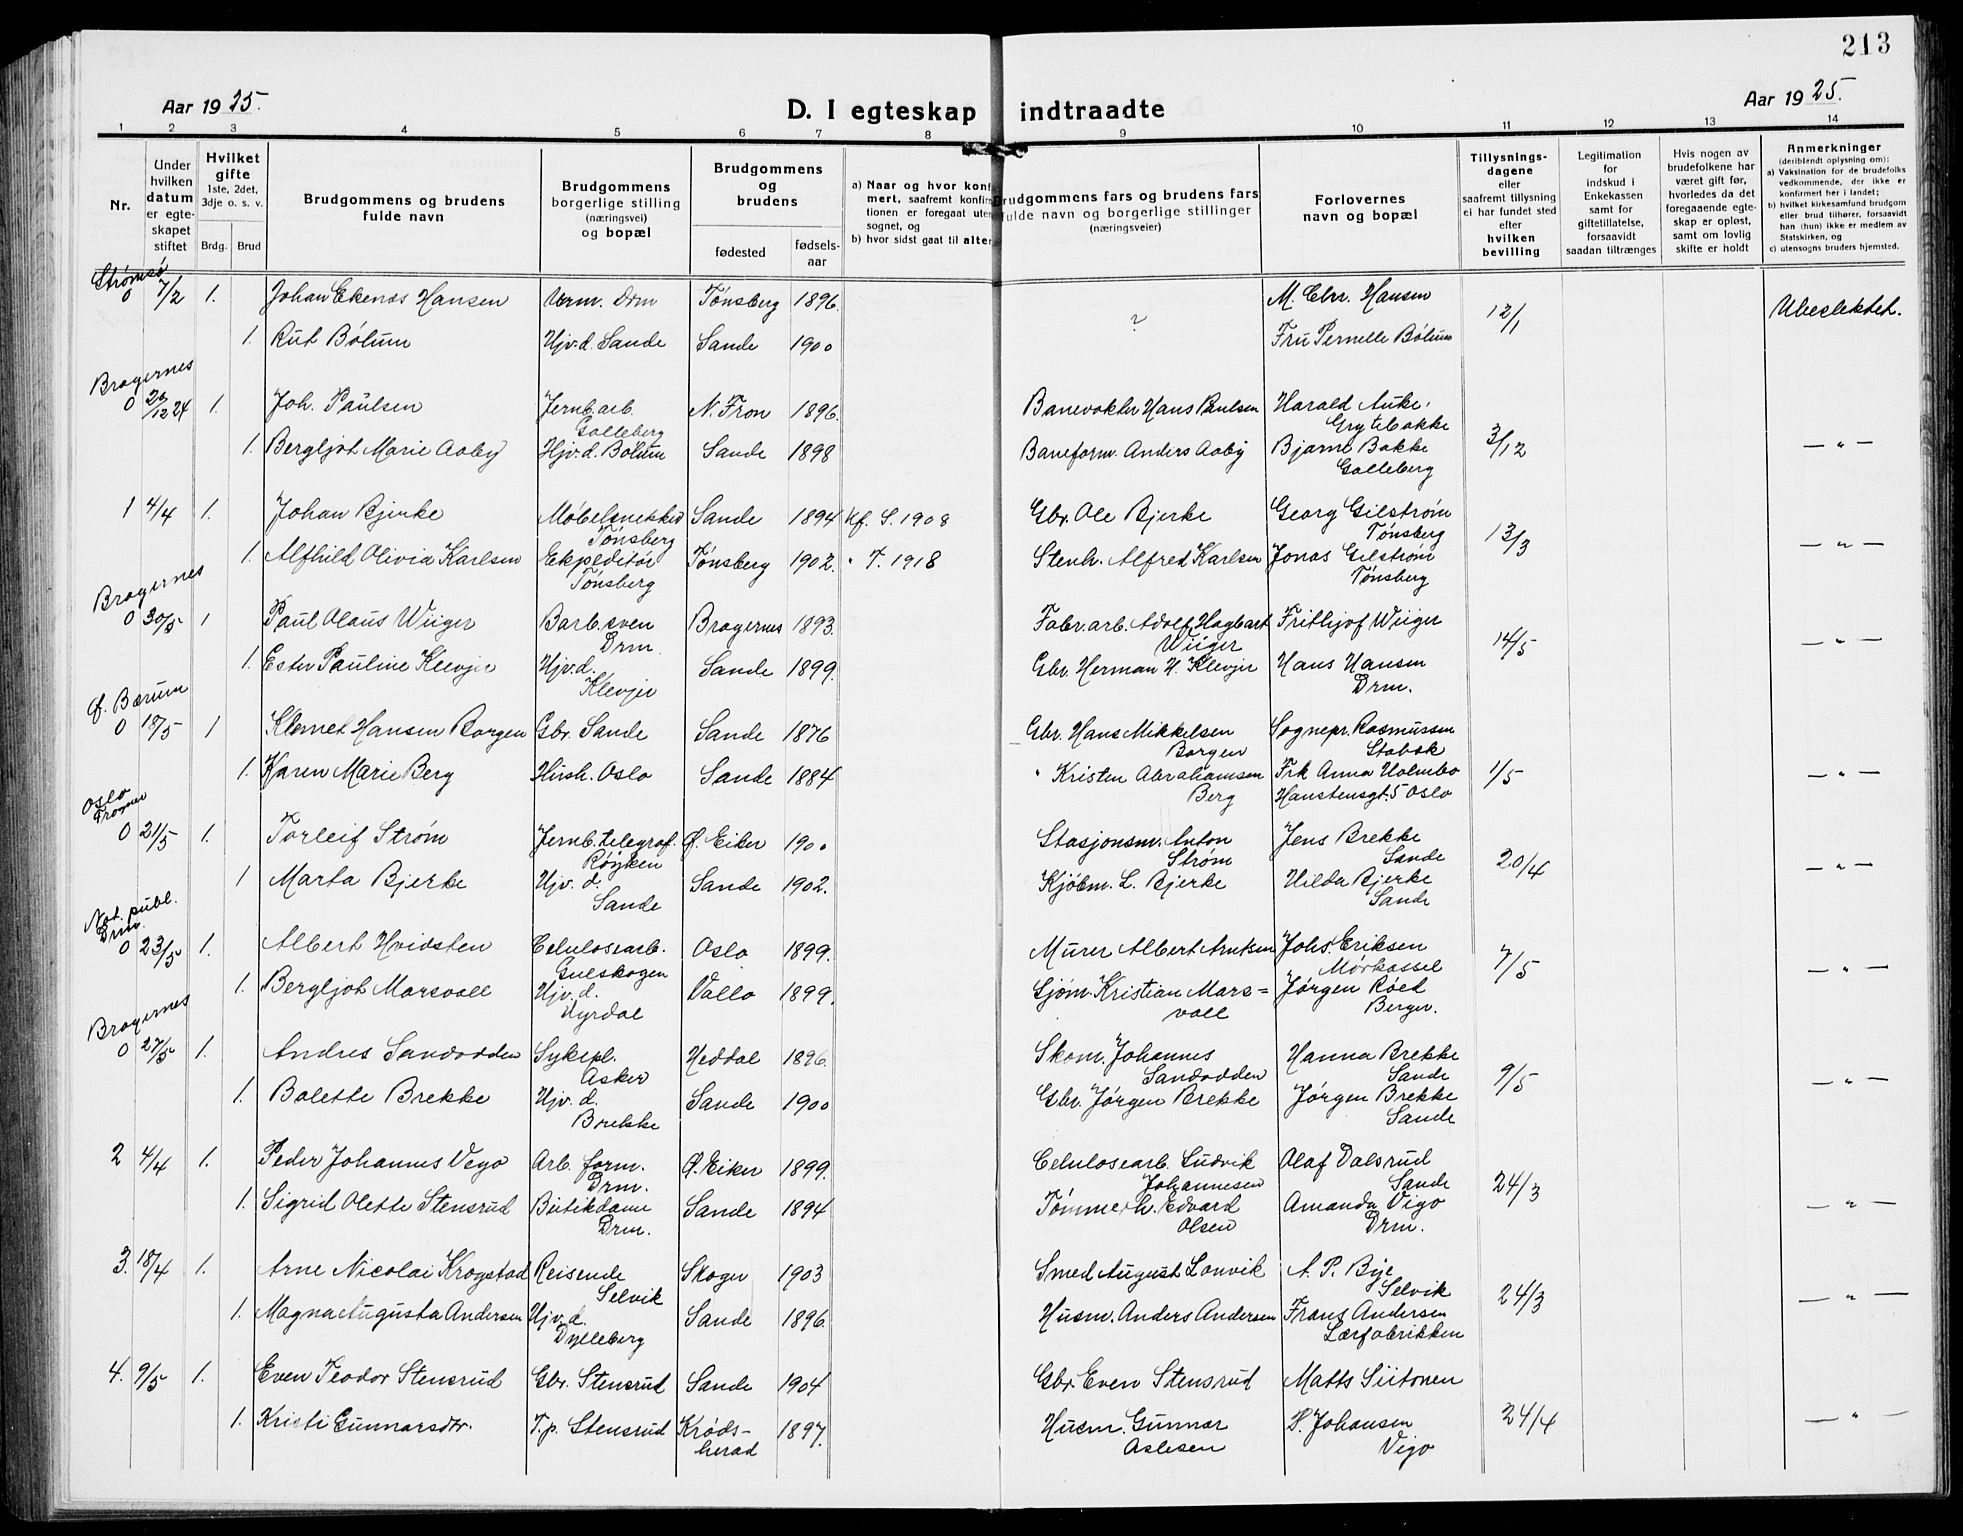 213
Aar 1925.
D. I egteskap indtraadte
Aar 1925.
1 2 3 4 5 6 7 8 9 10 11 12 13 14
Nr.
Under hvilken datum er egteskapet stiftet
Hvilket gifte
1ste, 2det, 3dje o. s. v.
Brdg. Brud
Brudgommens og brudens fulde navn
Brudgommens borgerlige stilling (næringsvei) og bopæl
Brudgommens og brudens
fødested
fødsels-aar
a) Naar og hvor konf
mert, saafremt konfir
tionen er foregaat uten
sognet, og
b) hvor sidst gaat til alter
Brudgommens fars og brudens fars
fulde navn og borgerlige stillinger
(næringsveier)
Forlovernes navn og bopæl
Tillysnings-dagene
eller
saafremt tillysning
ei har fundet sted
efter
hvilken
bevilling
Legitimation
for
indskud i
Enkekassen
samt for
giftetillatelse,
forsaavidt
saadan tiltrænges
Hvis nogen av
brudefolkene har
været gift før,
hvorledes da det
foregaaende egte-
skap er opløst,
samt om lovlig
skifte er holdt
Anmerkninger
(deriblandt oplysning om):
a) Vaksination for de brudefolks
vedkommende, der ikke er
konfirmert her i landet;
b) hvilket kirkesamfund brudgom
eller brud tilhører, forsaavidt
han (hun) ikke er medlem av
Statskirken, og
c) utensogns bruders hjemsted.
Strømsø
0 7/2 1. Johan Ekenæs Hansen Verm. Drm Tønsberg 1896. M. Chr. Hansen
? 12/1 Ubeslektet.
1. Rut Bølum Hjv.d. Sande Sande 1900 Fru Pernelle Bølum
Bragernes
0 20/12 24 1. Joh. Paulsen Jernb.arb. N. Fron 1896. Banevokter Hans Paulsen Harald Auke,
Galleberg Grytebakke
1. Bergljot Marie Aaby Hjv.d. Bølum Sande 1898 Baneform. Anders Aaby Bjarne Bakke 3/12 — " —
Galleberg
1 4/4 1. Johan Bjerke Møbelsnekker Sande 1894 Kf. S. 1908 Gbr. Ole Bjerke Georg Gilstrøm
Tønsberg Tønsberg 13/3
1. Alfhild Olivia Karlsen Ekspeditør Tønsberg 1902. " T. 1918 Stenh. Alfred Karlsen Jonas Gilstrøm — " —
Tønsberg Tønsberg
Bragernes
0 30/5 1 Paul Olaus Wiiger Barb.sven Bragernes 1893. Fabr.arb. Adolf Hagbart Frithjof Wiiger
Drm. Wiiger 14/5 — " —
1. Ester Pauline Klevjer Hjv.d. Sande 1899. Gbr. Herman H. Klevjer Hans Hansen
Klevjer Drm.
Ø. Bærum
0 18/5 1 Klemet Hansen Borgen Gbr. Sande Sande 1876 Gbr. Hans Mikkelsen Sognepr. Rasmussen
Borgen Stabæk
1. Karen Marie Berg Hush. Oslo Sande 1884 " Kristen Abrahamsen Frk Anna Holmbo 1/5 — " —
Berg Hanstensgt. 5 Oslo
Oslo
Frogner
0 21/5 1. Torleif Strøm Jernb.telegraf. Ø. Eiker 1900 Stasjonsm. Anton Jens Brekke
Røyken Strøm Sande 20/4
1 Marta Bjerke Hjv. d. Sande 1902. Kjøbm. L. Bjerke Hilda Bjerke — " —
Sande Sande
Not. publ.
Drm.
0 23/5 1. Albert Hvidsten Celulosearb. Oslo 1899. Murer Albert Arntsen Johs. Eriksen
Gulskogen Mørkassel 7/5
1. Bergljot Marsvall Hjv.d. Vallø 1899. Sjøm. Kristian Mars= Jørgen Røed — " —
Nyrdal vall Berger.
Bragernes
0 27/5 1. Andres Sandodden Sykepl. Heddal 1896. Skom. Johannes Hanna Brekke
Asker Sandodden Sande 9/5
1. Bolette Brekke Hjv. d. Sande 1900 Gbr. Jørgen Brekke Jørgen Brekke — " —
Brekke Sande
2 4/4 1. Peder Johannes Vego Arb. form. Ø. Eiker 1899. Celulosearb. Ludvik Olaf Dalsrud
Drm. Johannesen Sande 24/3
1. Sigrid Olette Stensrud Butikdame Sande 1894 Tømmerh. Edvard Amanda Vigo — " —
Drm. Olsen Drm.
3. 18/4 1. Arne Nicolai Krogstad Reisende Skoger 1903 Smed August Lonvik A. P. Bye
Selvik Selvik 24/3
1. Magna Augusta Andersen Hjv.d. Sande 1896. Husm. Anders Andersen Frans Andersen — " —
Dylleberg Lærfabrikken
4. 9/5 1. Even Teodor Stensrud Gbr. Stensrud Sande 1904 Gbr. Even Stensrud Matts Siitonen
1. Kristi Gunnarsdtr. T.p. Stensrud Krøds- 1897. Husm. Gunnar P. Johansen 24/4 — " —
herad Aslesen Vigo